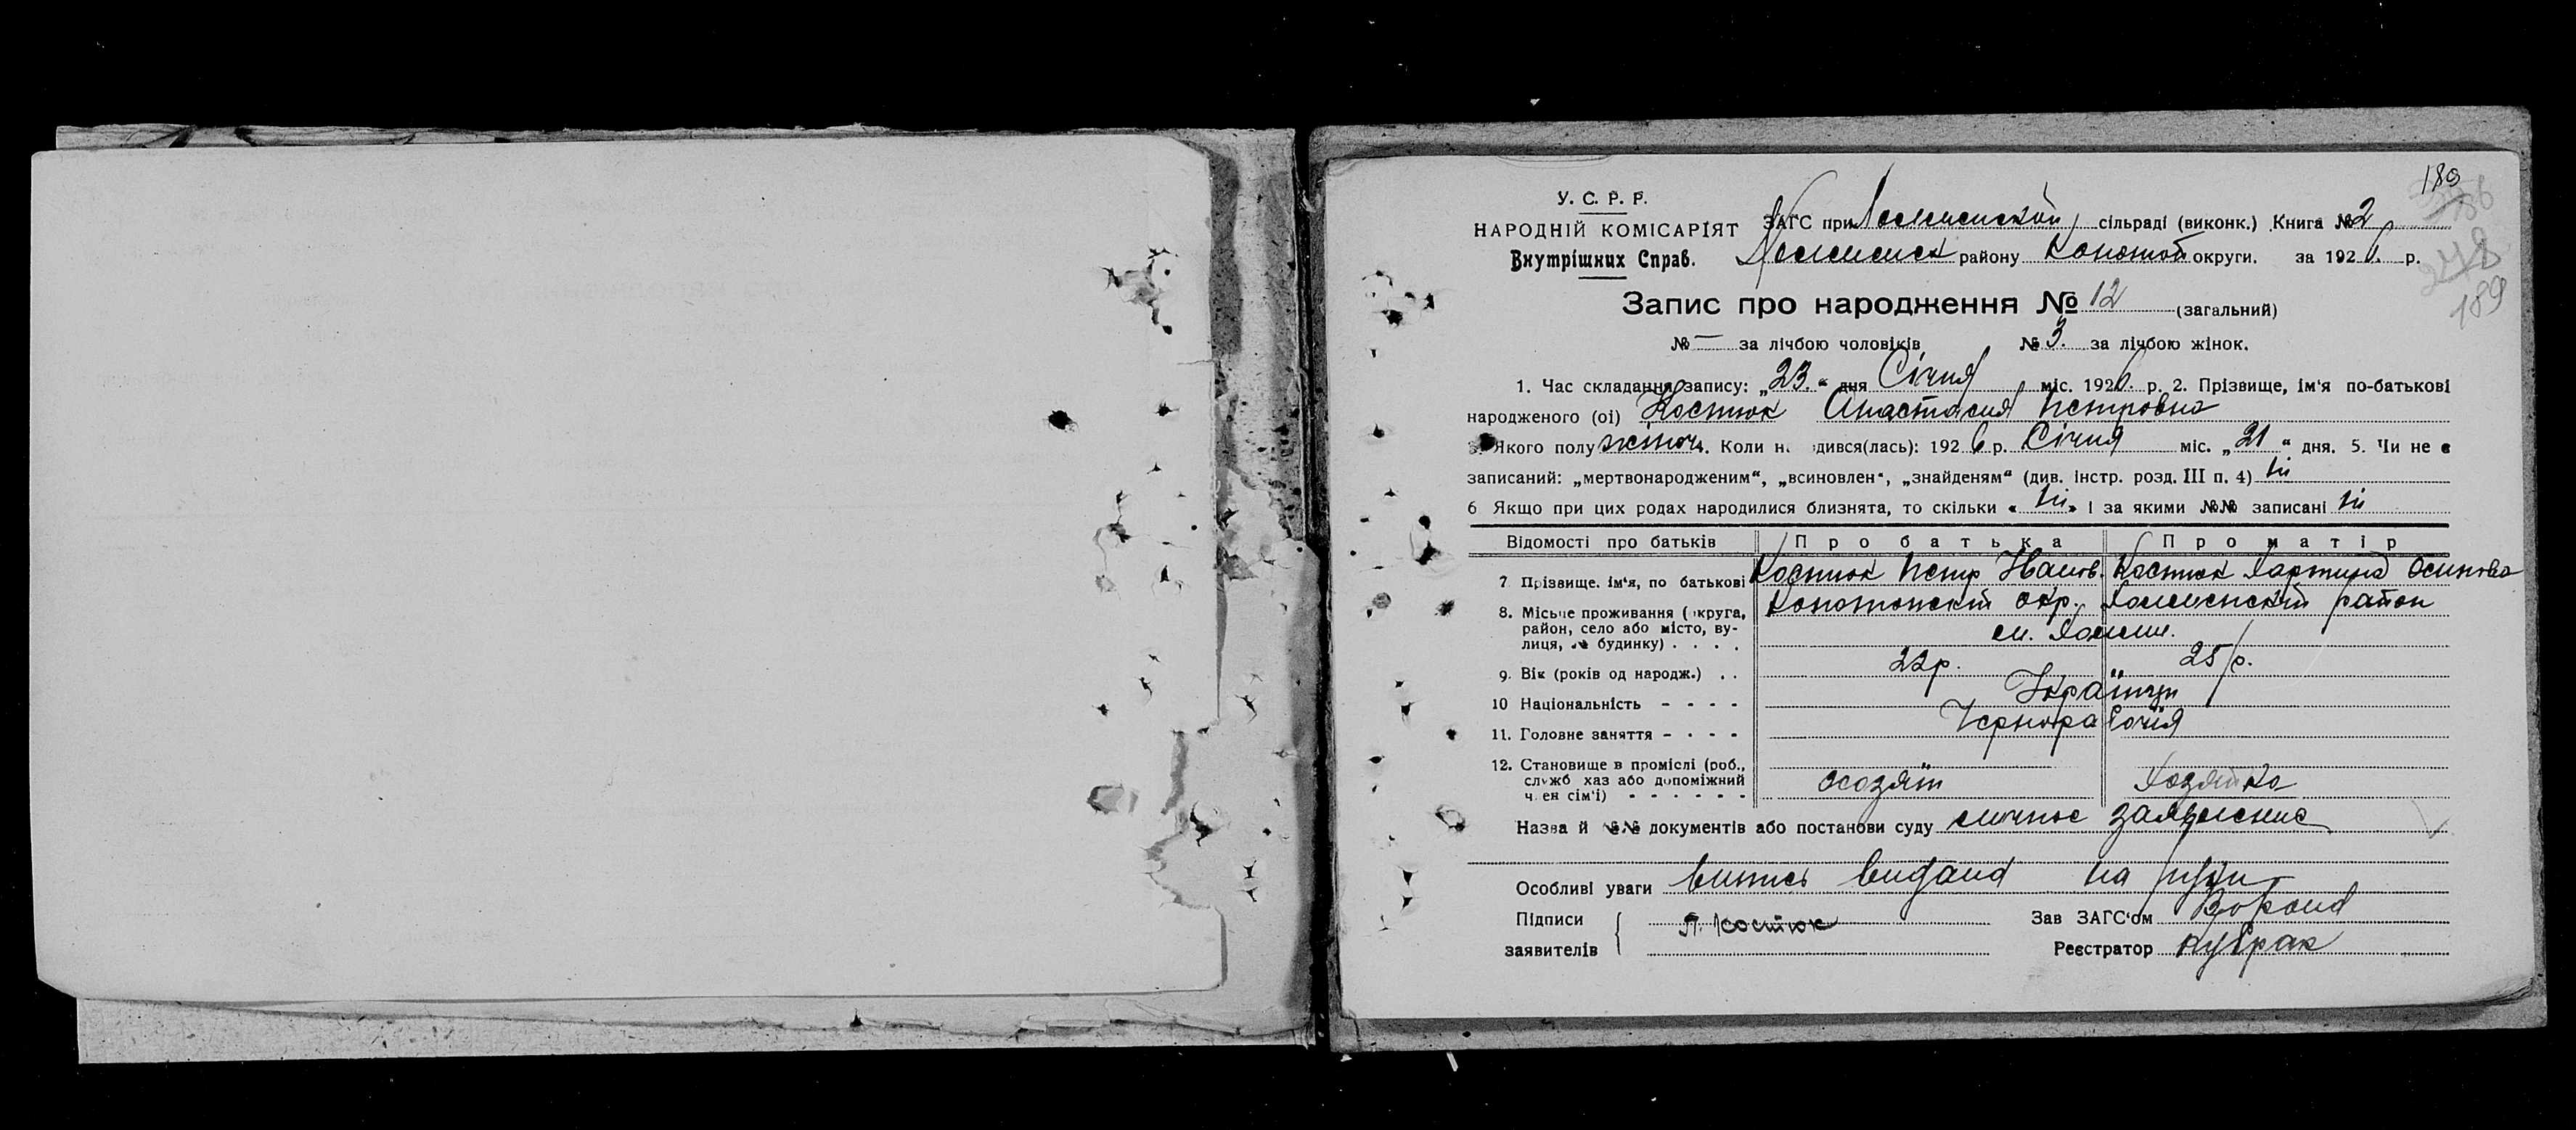 189
У. С. Р. Р.
НАРОДНІЙ КОМІСАРІЯТ
Внутрішних Справ.
ЗАГС при сільраді (виконк.) Книга № 2
району Конотоп округи. за 1926 р.
189
Запис про народження № 12 (загальний)
№ — за лічбою чоловіків № 3. за лічбою жінок.
1. Час складання запису: „23.“ дня Січня міс. 1926. р. 2. Прізвище, ім'я по-батькові
народженого (ої) Костюк Анастасия Петровна
3. Якого полу жіноч. Коли н дився(лась): 1926 р. Січня міс. „21“ дня. 5. Чи не є
записаний: „мертвонародженим“, „всиновлен“, „знайденям“ (див. інстр. розд. III п. 4) ні
6 Якщо при цих родах народилися близнята, то скільки « ні » і за якими №№ записані ні
Відомості про батьків Про батька Про матір
7 Прізвище. ім'я, по батькові Костюк Петр Іванов. Костюк Осипова
8. Місьце проживання (округа, район, село або місто, вулиця, № будинку) . . . . Конотопский окр. район
9. Вік (років од народж.) . . 22 р. 25 р.
10 Національність - - - - Українці
11. Головне заняття - - - - Чернорабочія
12. Становище в проміслі (роб., служб хаз або допоміжний член сім'ї) - - - - - - хозяїн Хозяйка
Назва й №№ документів або постанови суду личное заявление
Особливі уваги випись видана на руки
Підписи
заявителів П. Костюк
Зав ЗАГС'ом
Реєстратор Кубрак